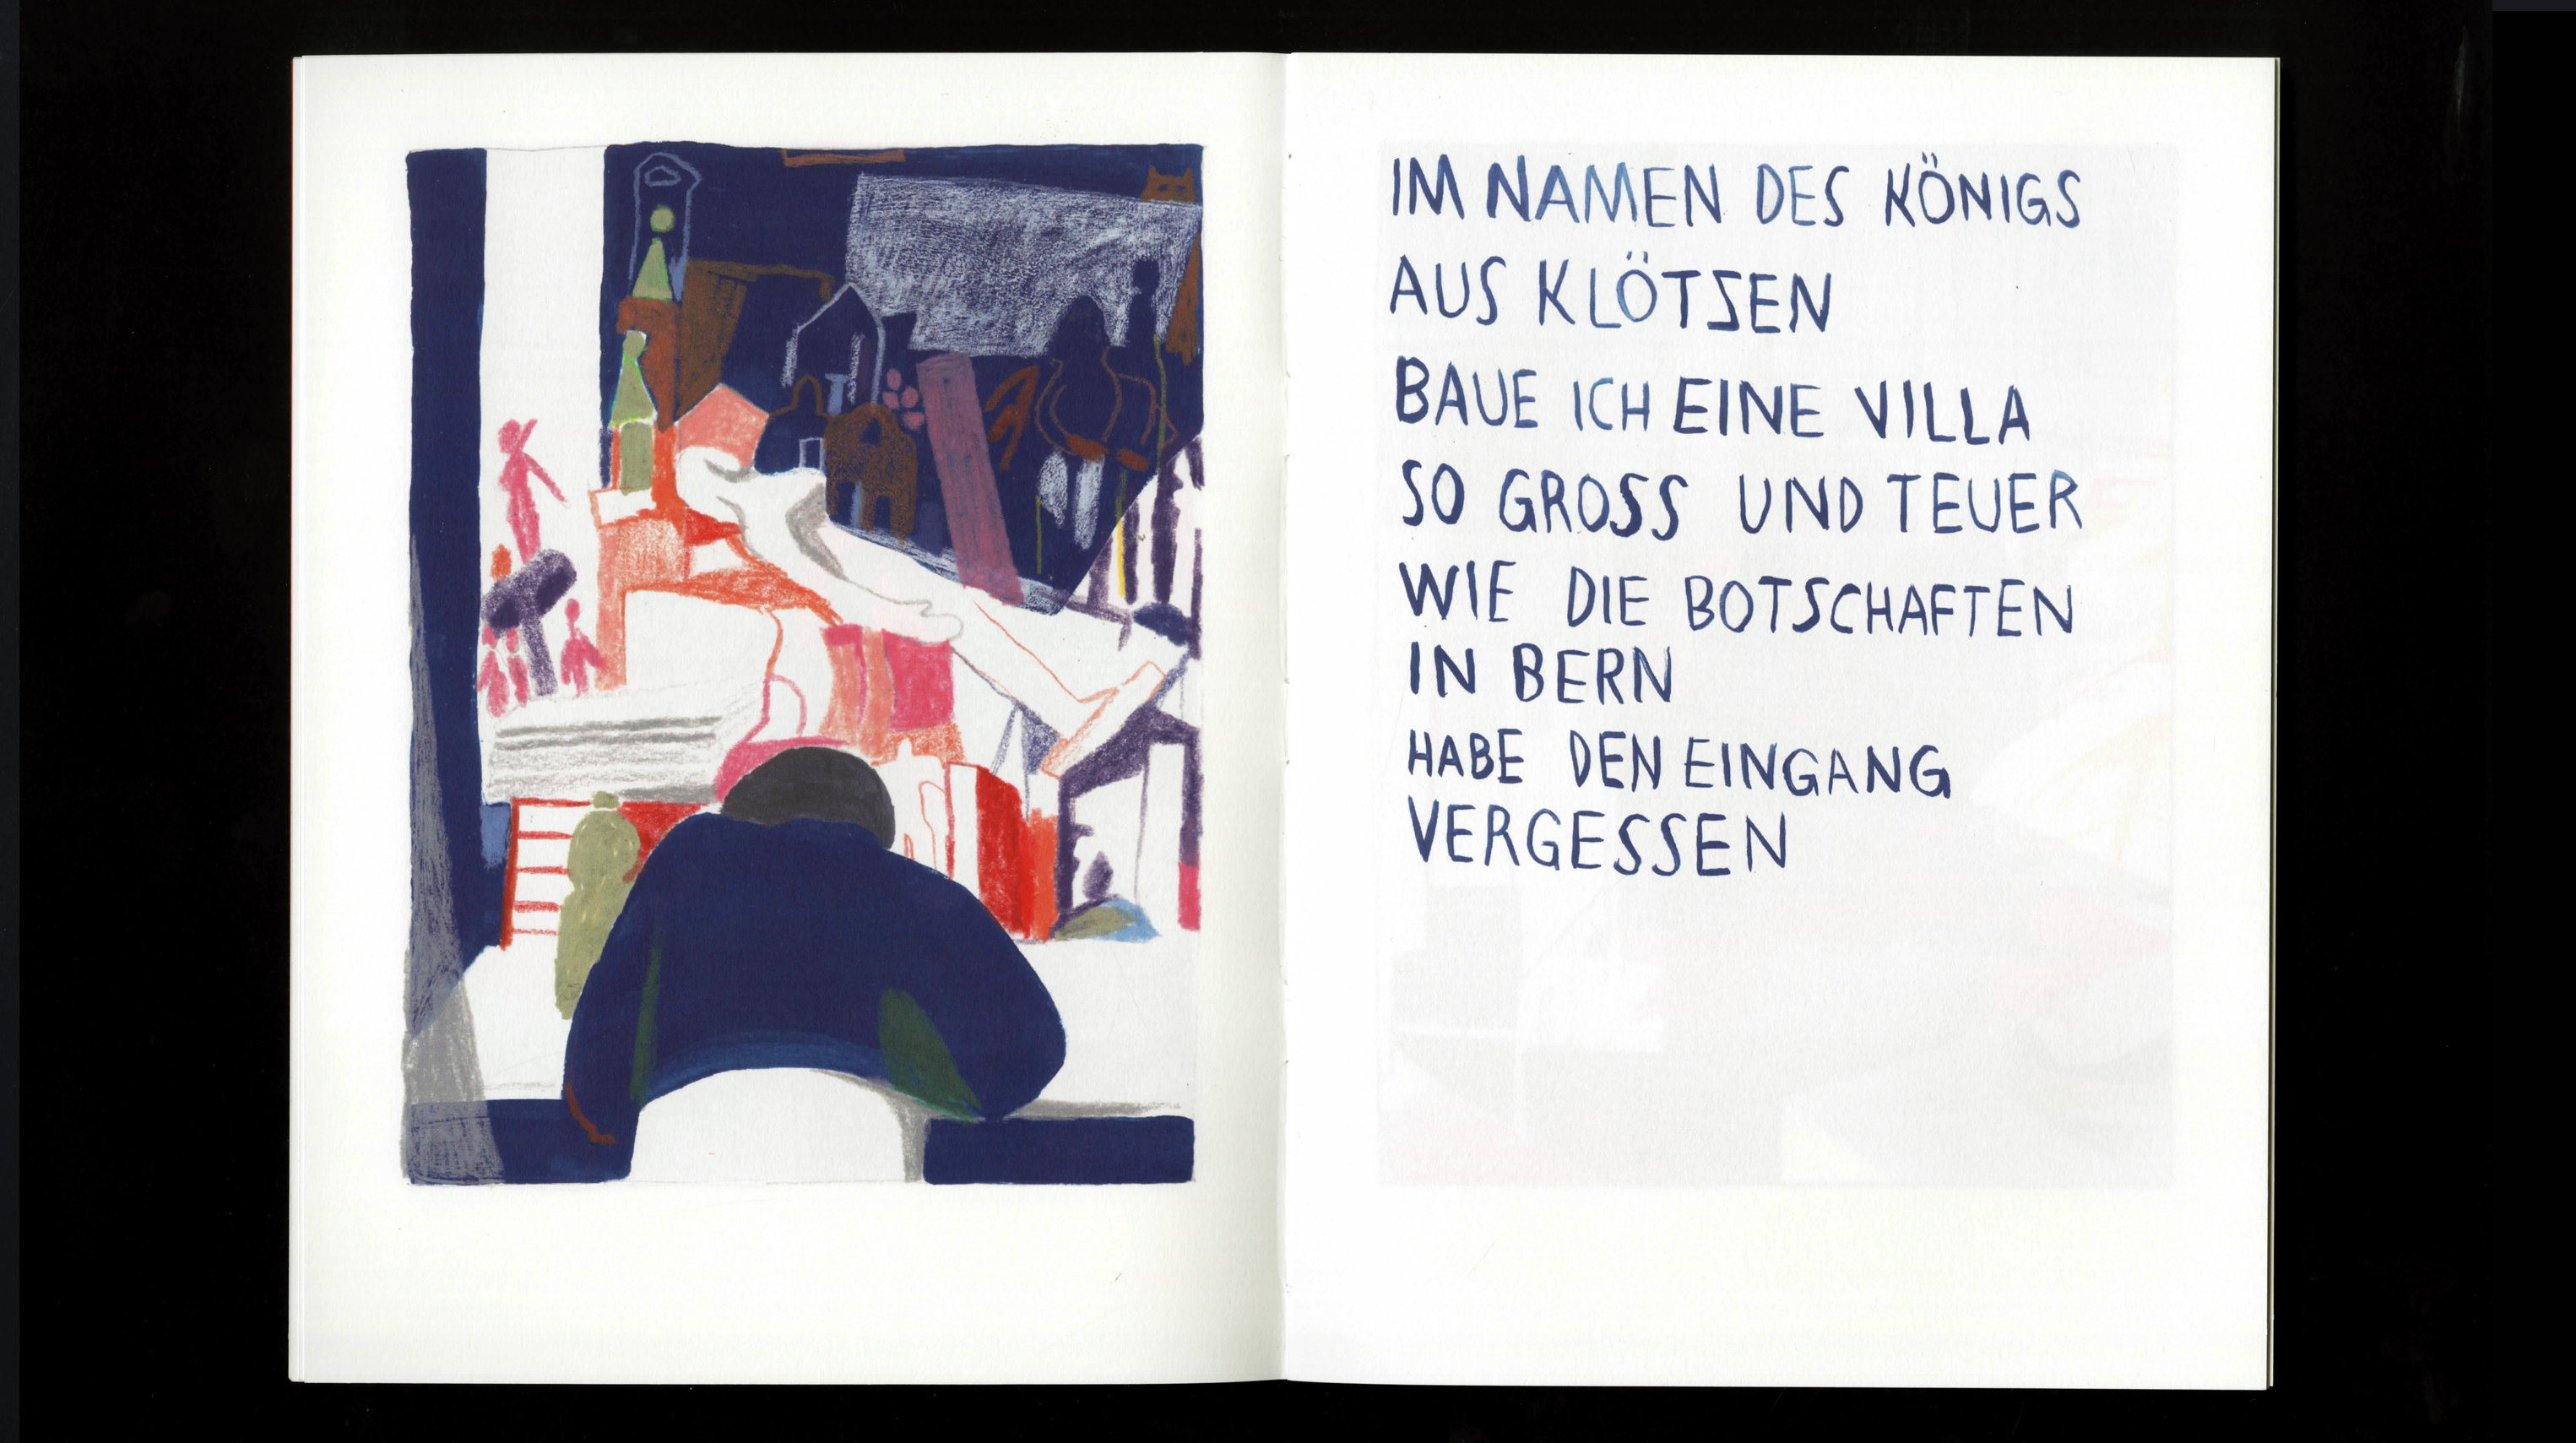 IM NAMEN DES KÖNIGS
AUS KLÖTZEN
BAUE ICH EINE VILLA
SO GROSS UND TEUER
WIE DIE BOTSCHAFTEN
IN BERN
HABE DEN EINGANG
VERGESSEN